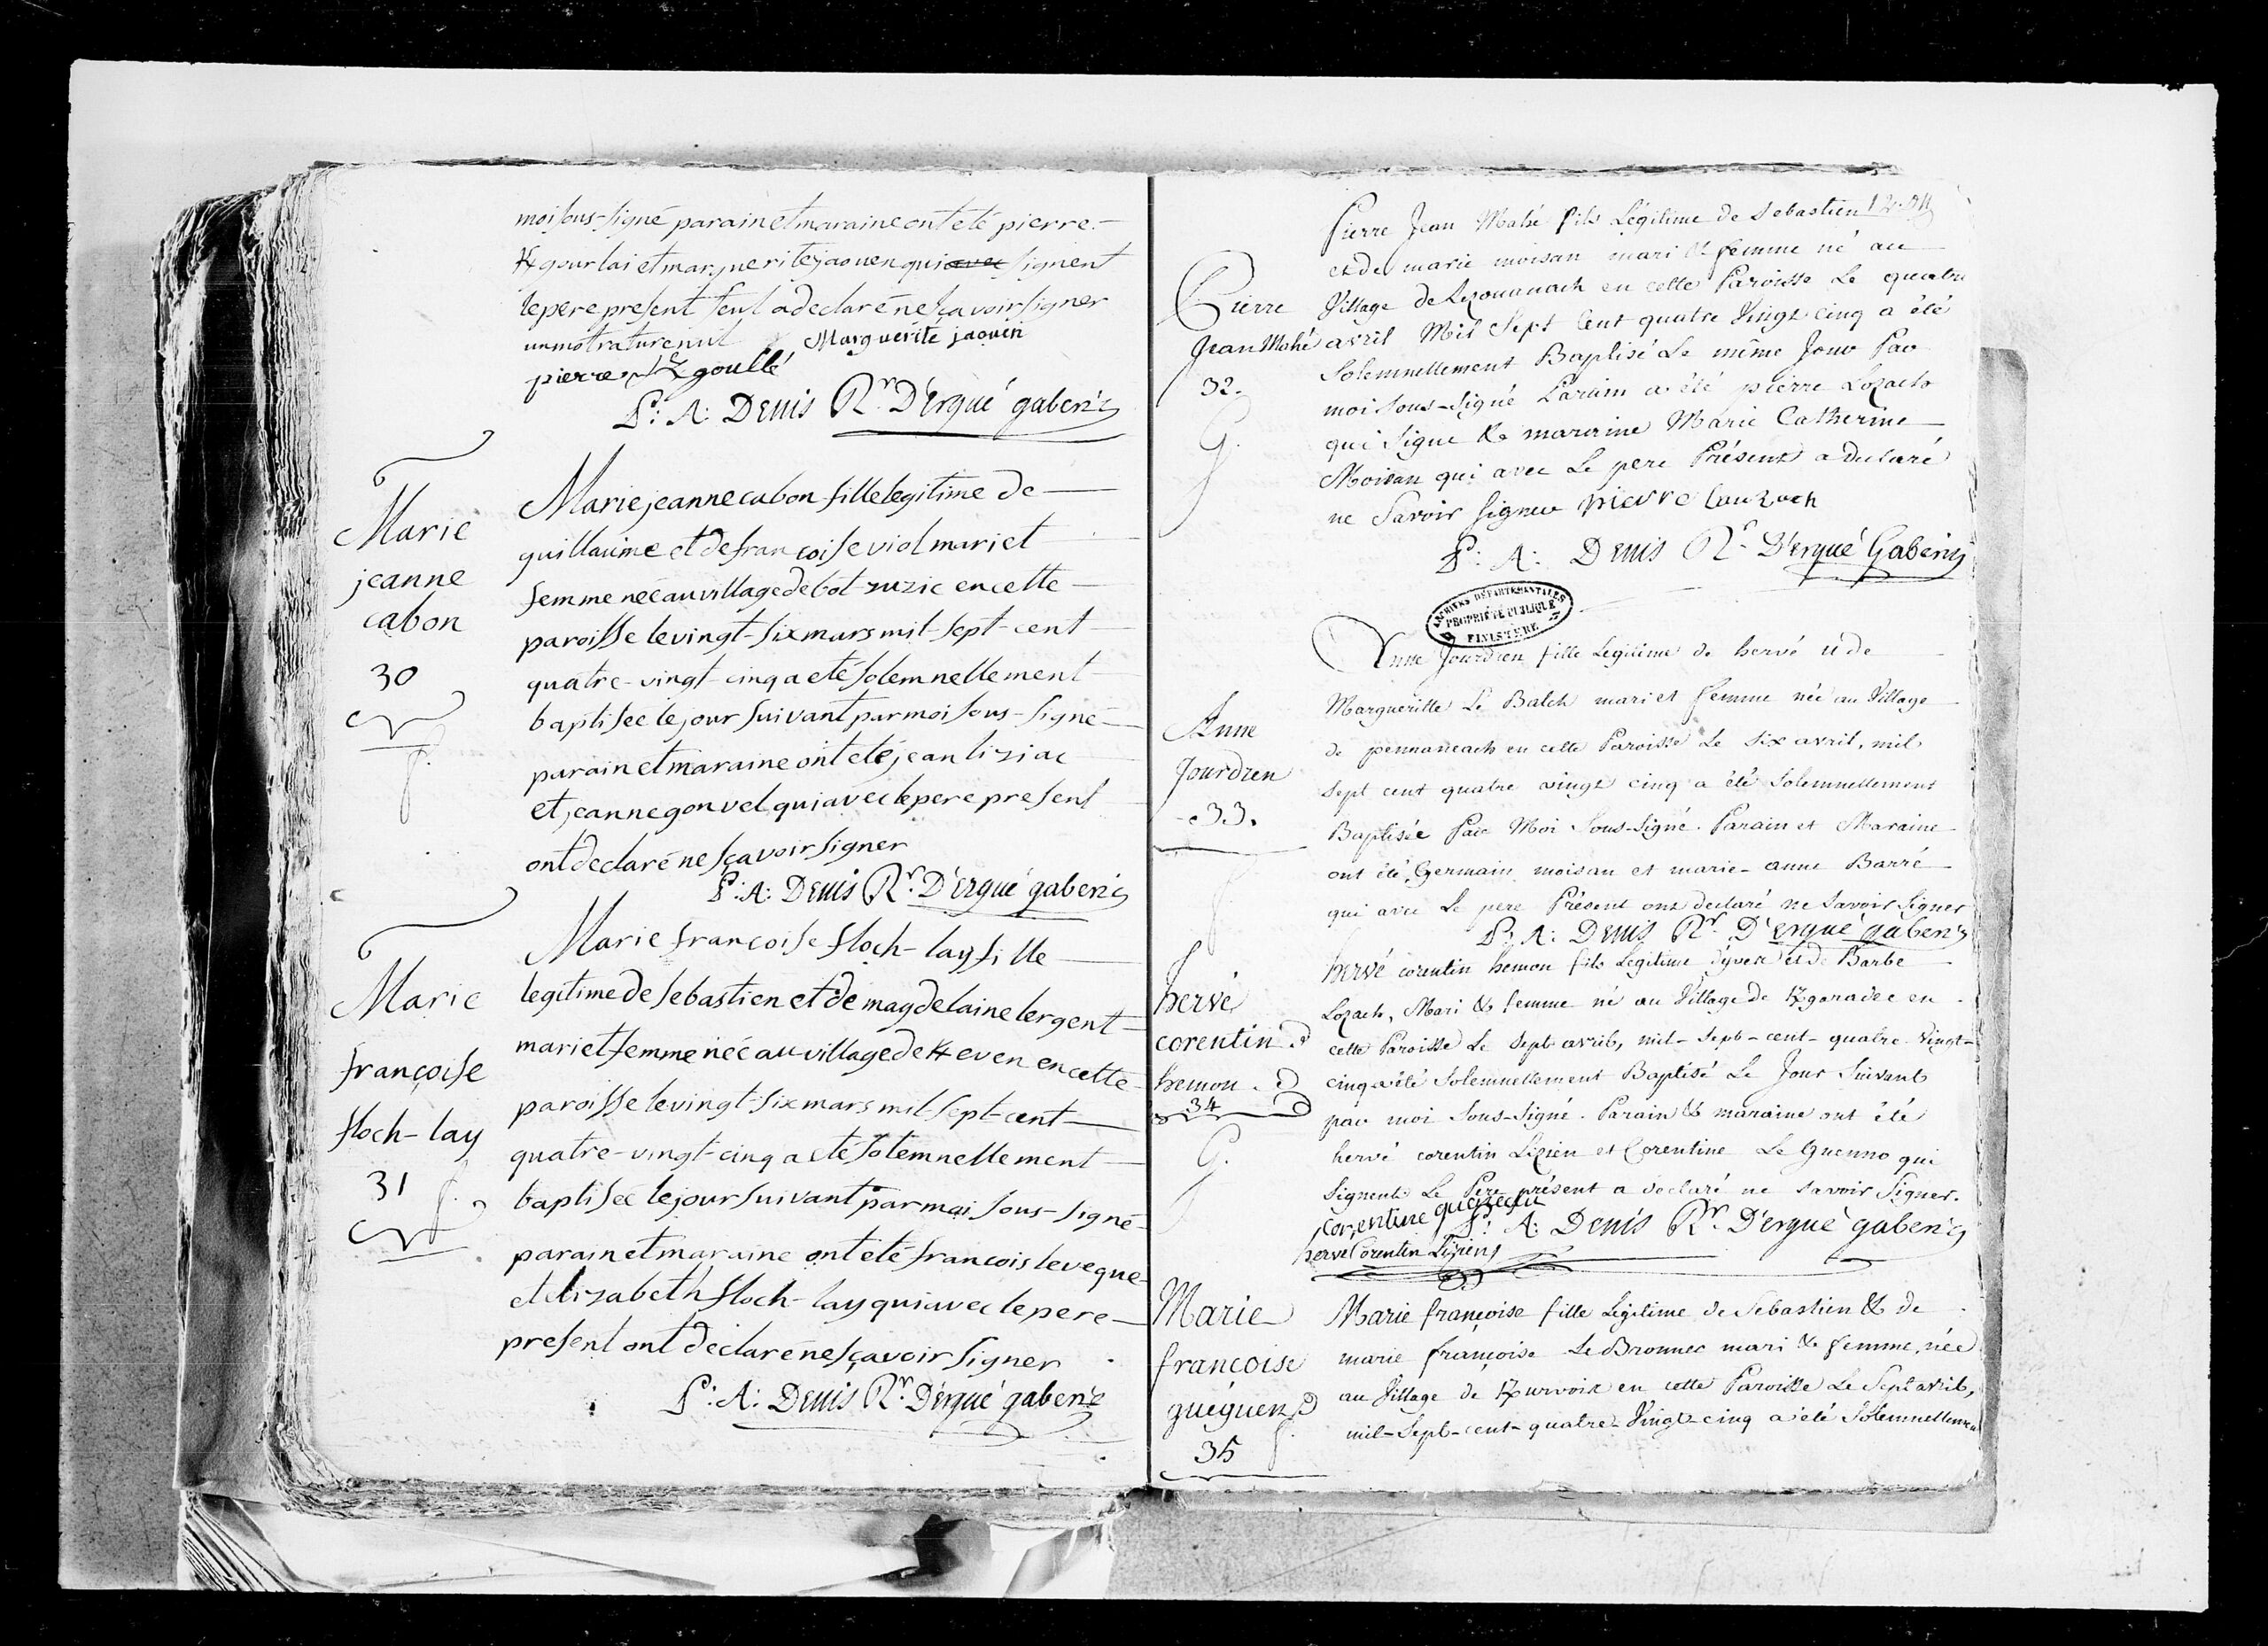 moi sous-signé parain et maraine ont eté pierre-
K/gourlai et marguerite jaouen qui avec signent
le pere present seul a declaré ne sçavoir signer
un mot raturé nul
Marguerite jaouen
pierre goullé
P: A: Denis Rr. D'ergué gaberic
Marie
jeanne
cabon
30
Marie jeanne cabon fille legitime de
guillaume et de francoise viol mari et
femme née au village de bot-zuzic en cette
paroisse le vingt-six mars mil-sept-cent
quatre-vingt-cinq a eté solemnellement
baptisée le jour suivant par moi sous-signé
parain et maraine ont eté jean liziac
et jeanne gonvel qui avec le pere present
ont declaré ne sçavoir signer
P: A: Denis Rr. D'ergué gaberic
Marie
françoise
floch-lay
31
Marie francoise floch-lay fille
legitime de sebastien et de magdelaine lergent
mari et femme née au village de K/even en cette
paroisse le vingt-six mars mil sept-cent
quatre-vingt-cinq a eté solemnellement
baptisée le jour suivant par moi sous-signé
parain et maraine ont eté francois leveque
et elizabeth floch-lay qui avec le pere
present ont declaré ne sçavoir signer
P: A: Denis Rr. D'ergué gaberic
Pierre
Jean Mahé
32.
G.
Pierre Jean Mahé fils Légitime de Sebastien
et de marie moisan mari & femme né au
Village de Lezouanach en cette Paroisse Le quatre
avril Mil Sept Cent quatre Vingt cinq a été
Solemnellement Baptisé Le même Jour Par
moi sous-signé Parain a été pierre Lozach
qui signe & maraine Marie Catherine
Moisan qui avec Le pere Présent a declaré
ne Savoir signer pierre lauzach
P: A: Denis Rr. D'ergué Gaberic
ARCHIVES DÉPARTEMENTALES
PROPRIÉTÉ PUBLIQUE
FINISTÈRE
Anne
Jourdren
33.
Anne Jourdren fille Légitime de hervé et de
Margueritte Le Balch mari et femme née au Village
de pennaneach en cette Paroisse Le six avril, mil
sept cent quatre vingt cinq a été Solemnellement
Baptisée Par Moi Sous-signé. Parain et Maraine
ont été Germain moisan et marie-anne Barré
qui avec Le pere Présent ont declaré ne Savoir Signer
P: A: Denis Rr. D'ergué gaberic
hervé
corentin
hemon
34
G.
hervé corentin hemon fils Legitime d'yven et de Barbe
Lozach, Mari & femme né au Village de K/garadec en
cette Paroisse Le sept avril, mil-sept-cent-quatre-Vingt-
cinq a été Solemnellement Baptisé Le Jour Suivant
par moi Sous-Signé. Parain & maraine ont été
hervé corentin Lizien et Corentine Le Guenno qui
Signent Le Pere présent a declaré ne savoir Signer.
corentine
P: A: Denis Rr. D'ergué gaberic
herve Corentin Lizien
Marie
francoise
guéguen
35
Marie françoise fille Légitime de Sébastien & de
marie françoise Le Bronnec mari & femme, née
au Village de K/urvois en cette Paroisse Le Sept avril,
mil-Sept-cent-quatre-Vingt-cinq a été Solemnellement